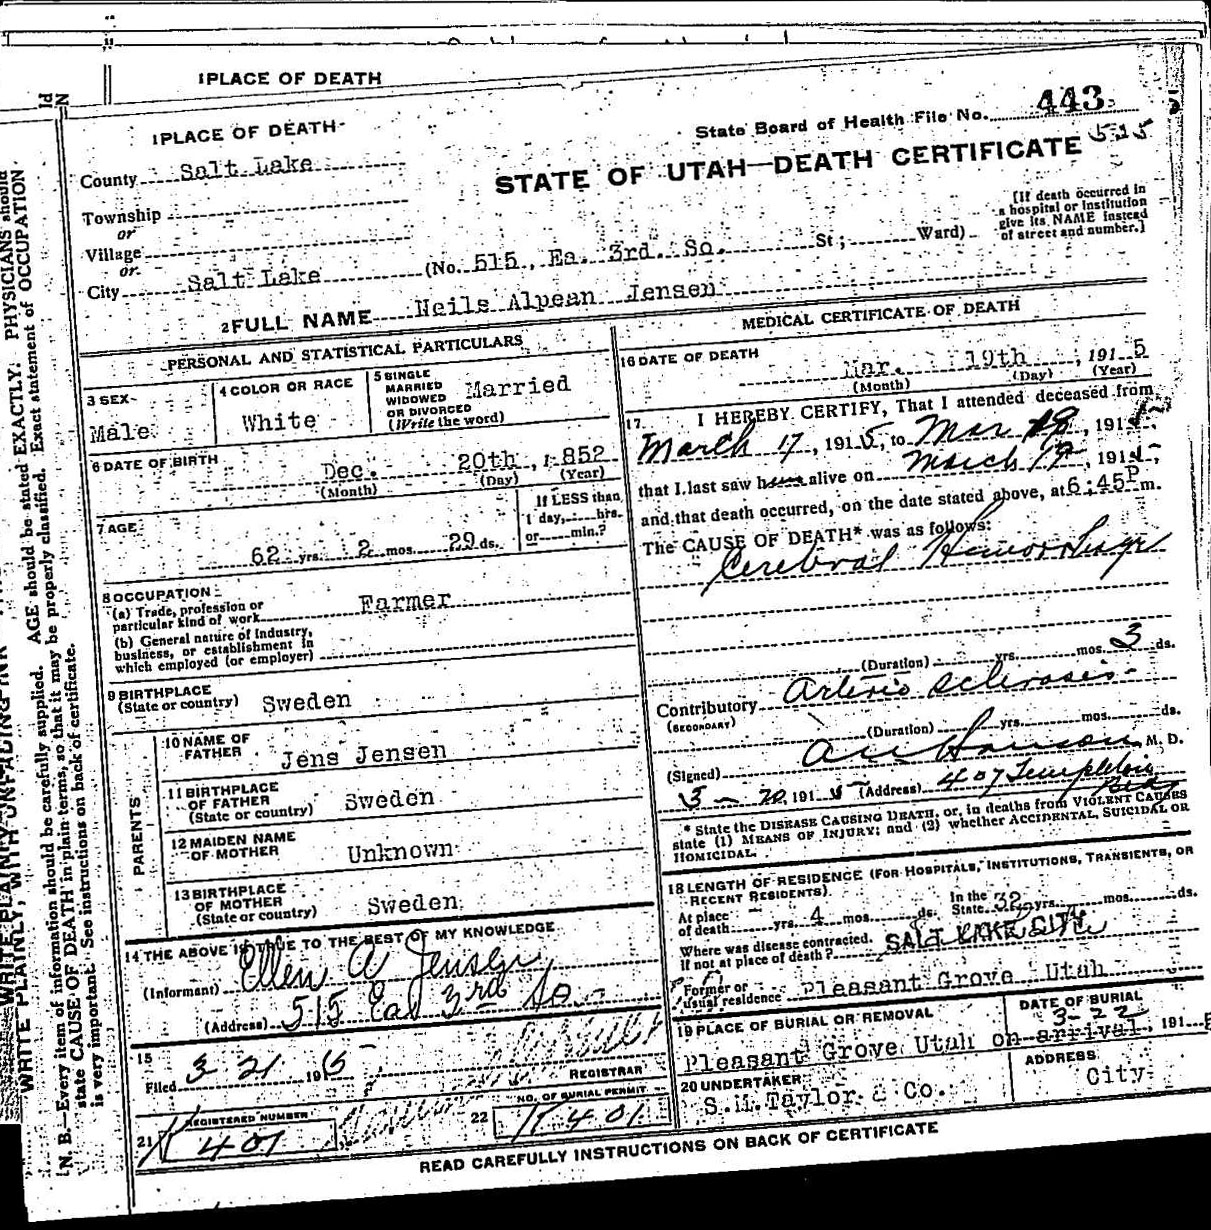 1PLACE OF DEATH
1PLACE OF DEATH
State Board of Health File No. 443
515
County Salt Lake
STATE OF UTAH—DEATH CERTIFICATE
Township
or
Village
or
City Salt Lake (No. 515, Ea. 3rd. So. St; Ward)
[If death occurred in
a hospital or institution
give its NAME instead
of street and number.]
2FULL NAME Neils Alpean Jensen
PERSONAL AND STATISTICAL PARTICULARS
3 SEX
Male
4 COLOR OR RACE
White
5 SINGLE
MARRIED
WIDOWED
OR DIVORCED
(Write the word)
Married
6 DATE OF BIRTH
Dec. 20th, 1852
(Month) (Day) (Year)
7 AGE
62 yrs. 2 mos. 29 ds.
If LESS than
1 day, hrs.
or min.?
8 OCCUPATION
(a) Trade, profession or
particular kind of work Farmer
(b) General nature of Industry,
business, or establishment in
which employed (or employer)
9 BIRTHPLACE
(State or country) Sweden
PARENTS
10 NAME OF
FATHER Jens Jensen
11 BIRTHPLACE
OF FATHER
(State or country) Sweden
12 MAIDEN NAME
OF MOTHER Unknown
13 BIRTHPLACE
OF MOTHER
(State or country) Sweden
14 THE ABOVE IS TRUE TO THE BEST OF MY KNOWLEDGE
(Informant) Ellen A Jensen
(Address) 515 Ea 3rd So
15
Filed 3 21 1915
REGISTRAR
21 REGISTERED NUMBER
K 401
22 NO. OF BURIAL PERMIT
K 401
MEDICAL CERTIFICATE OF DEATH
16 DATE OF DEATH
Mar. 19th, 1915
(Month) (Day) (Year)
17. I HEREBY CERTIFY, That I attended deceased from
March 17, 1915, to Mar 18, 1915,
that I last saw him alive on March 19, 1915,
and that death occurred, on the date stated above, at 6:45P m.
The CAUSE OF DEATH* was as follows:
Cerebral Hemorrhage
(Duration) yrs. mos. 3 ds.
Contributory Arterio Sclerosis
(SECONDARY)
(Duration) yrs. mos. ds.
(Signed) M. D.
3-20 1915 (Address) 407 Templeton Bldg
* State the DISEASE CAUSING DEATH, or, in deaths from VIOLENT CAUSES
state (1) MEANS OF INJURY; and (2) whether ACCIDENTAL, SUICIDAL OR
HOMICIDAL.
18 LENGTH OF RESIDENCE (FOR HOSPITALS, INSTITUTIONS, TRANSIENTS, OR
RECENT RESIDENTS)
At place
of death yrs. 4 mos. ds.
In the
State 32 yrs. mos. ds.
Where was disease contracted,
if not at place of death? SALT LAKE CITY
Former or
usual residence Pleasant Grove Utah
19 PLACE OF BURIAL OR REMOVAL
Pleasant Grove Utah
DATE OF BURIAL
3-22
on arrival, 1915
20 UNDERTAKER
S.M.Taylor & Co.
ADDRESS
City
READ CAREFULLY INSTRUCTIONS ON BACK OF CERTIFICATE
WRITE PLAINLY, WITH UNFADING INK
N. B.—Every item of information should be carefully supplied. AGE should be stated EXACTLY. PHYSICIANS should
state CAUSE OF DEATH in plain terms, so that it may be properly classified. Exact statement of OCCUPATION
is very important. See instructions on back of certificate.